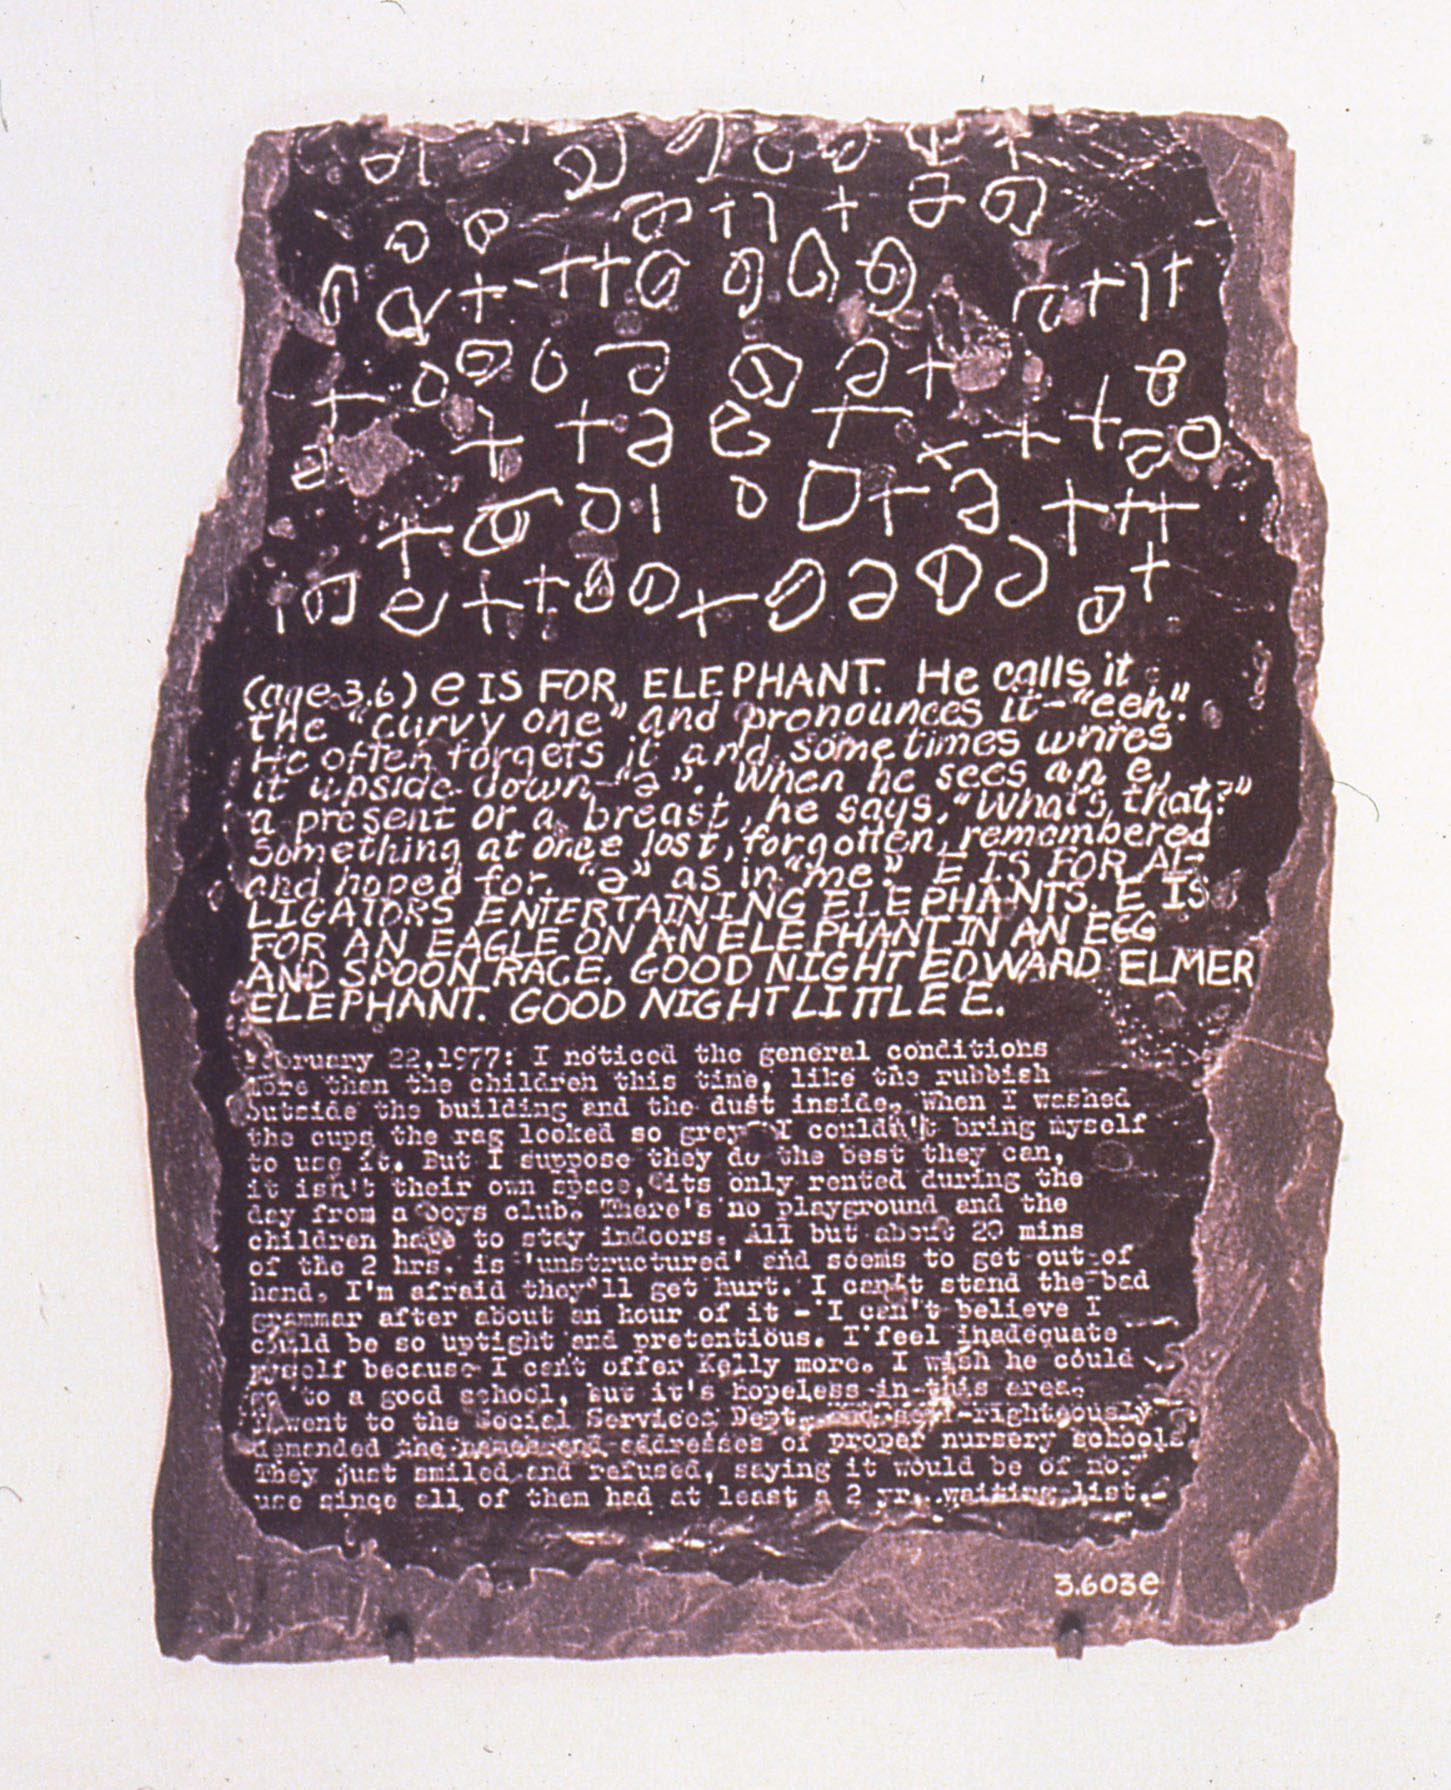 (age 3.6) e IS FOR ELEPHANT. He calls it
the "curvy one" and pronounces it-"eeh".
He often forgets it and sometimes writes
it upside-down-"ə". When he sees an e,
a present or a breast, he says, "What's that?"
Something at once lost, forgotten, remembered
and hoped for. "ə" as in "me." E IS FOR AL-
LIGATORS ENTERTAINING ELEPHANTS. E IS
FOR AN EAGLE ON AN ELEPHANT IN AN EGG
AND SPOON RACE. GOOD NIGHT EDWARD ELMER
ELEPHANT. GOOD NIGHT LITTLE E.
February 22,1977: I noticed the general conditions
more than the children this time, like the rubbish
outside the building and the dust inside. When I washed
the cups the rag looked so grey I couldn't bring myself
to use it. But I suppose they do the best they can,
it isn't their own space, its only rented during the
day from a boys club. There's no playground and the
children have to stay indoors. All but about 20 mins
of the 2 hrs. is 'unstructured' and seems to get out of
hand. I'm afraid they'll get hurt. I can't stand the bad
grammar after about an hour of it - I can't believe I
could be so uptight and pretentious. I feel inadequate
myself because I can't offer Kelly more. I wish he could
go to a good school, but it's hopeless in this area.
I went to the Social Services Dept. and self-righteously
demanded the names and addresses of proper nursery schools.
They just smiled and refused, saying it would be of no
use since all of them had at least a 2 yr. waiting list.
3.603e